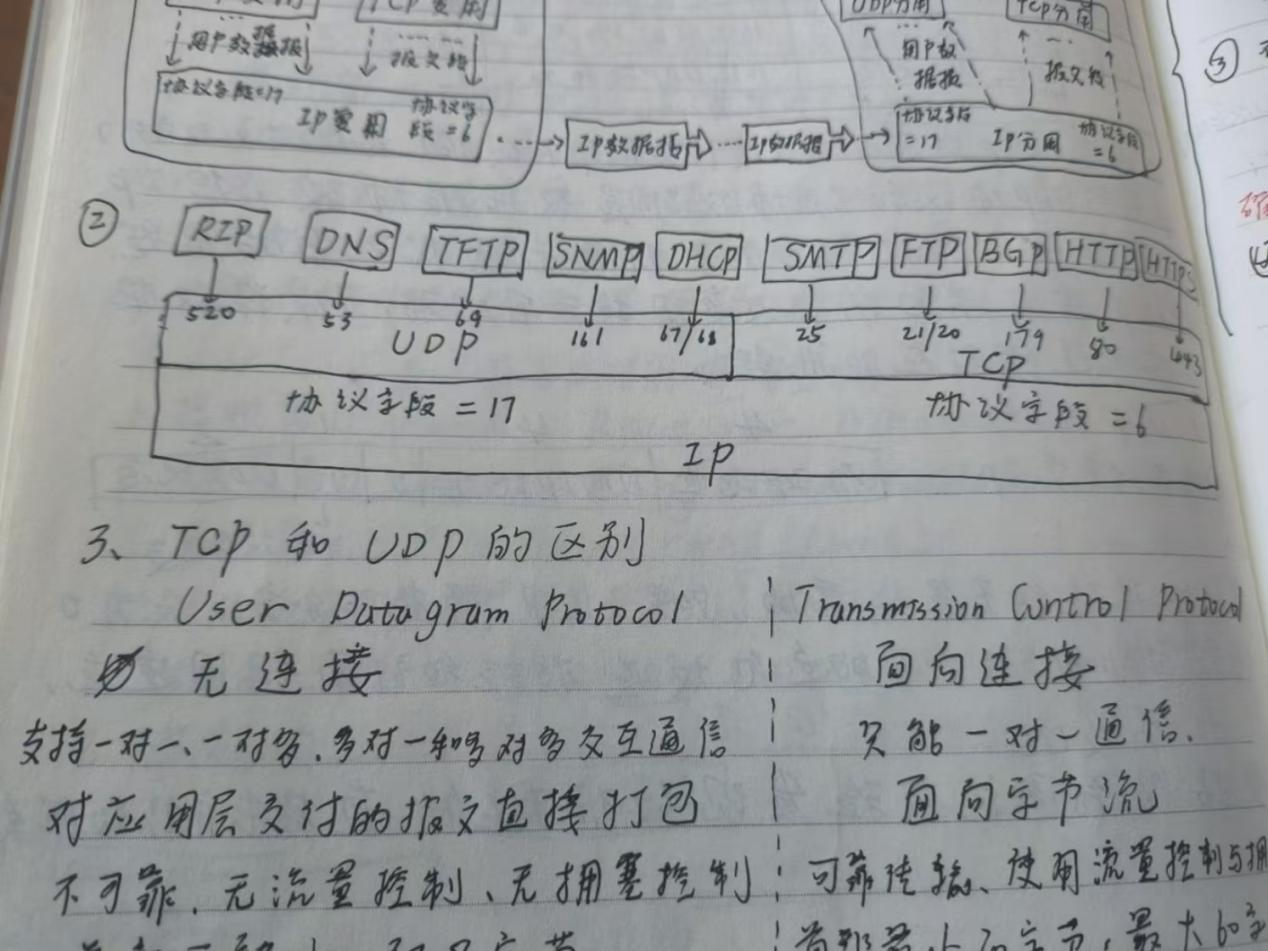 TCP复用
UDP分用
TCP分用
用户数据报
报文段
用户数据报
报文段
协议字段=17
IP复用
协议字段=6
IP数据报
IP数据报
协议字段=17
IP分用
协议字段=6
③
② RIP DNS TFTP SNMP DHCP SMTP FTP BGP HTTP HTTPS
520 53 69 161 67/68 25 21/20 179 80 443
UDP TCP
协议字段=17 协议字段=6
IP
3、TCP 和 UDP 的区别
User Datagram Protocol Transmission Control Protocol
无连接 面向连接
支持一对一、一对多、多对一和多对多交互通信 只能一对一通信.
对应用层交付的报文直接打包 面向字节流
不可靠.无流量控制、无拥塞控制 可靠传输、使用流量控制与拥
最大60